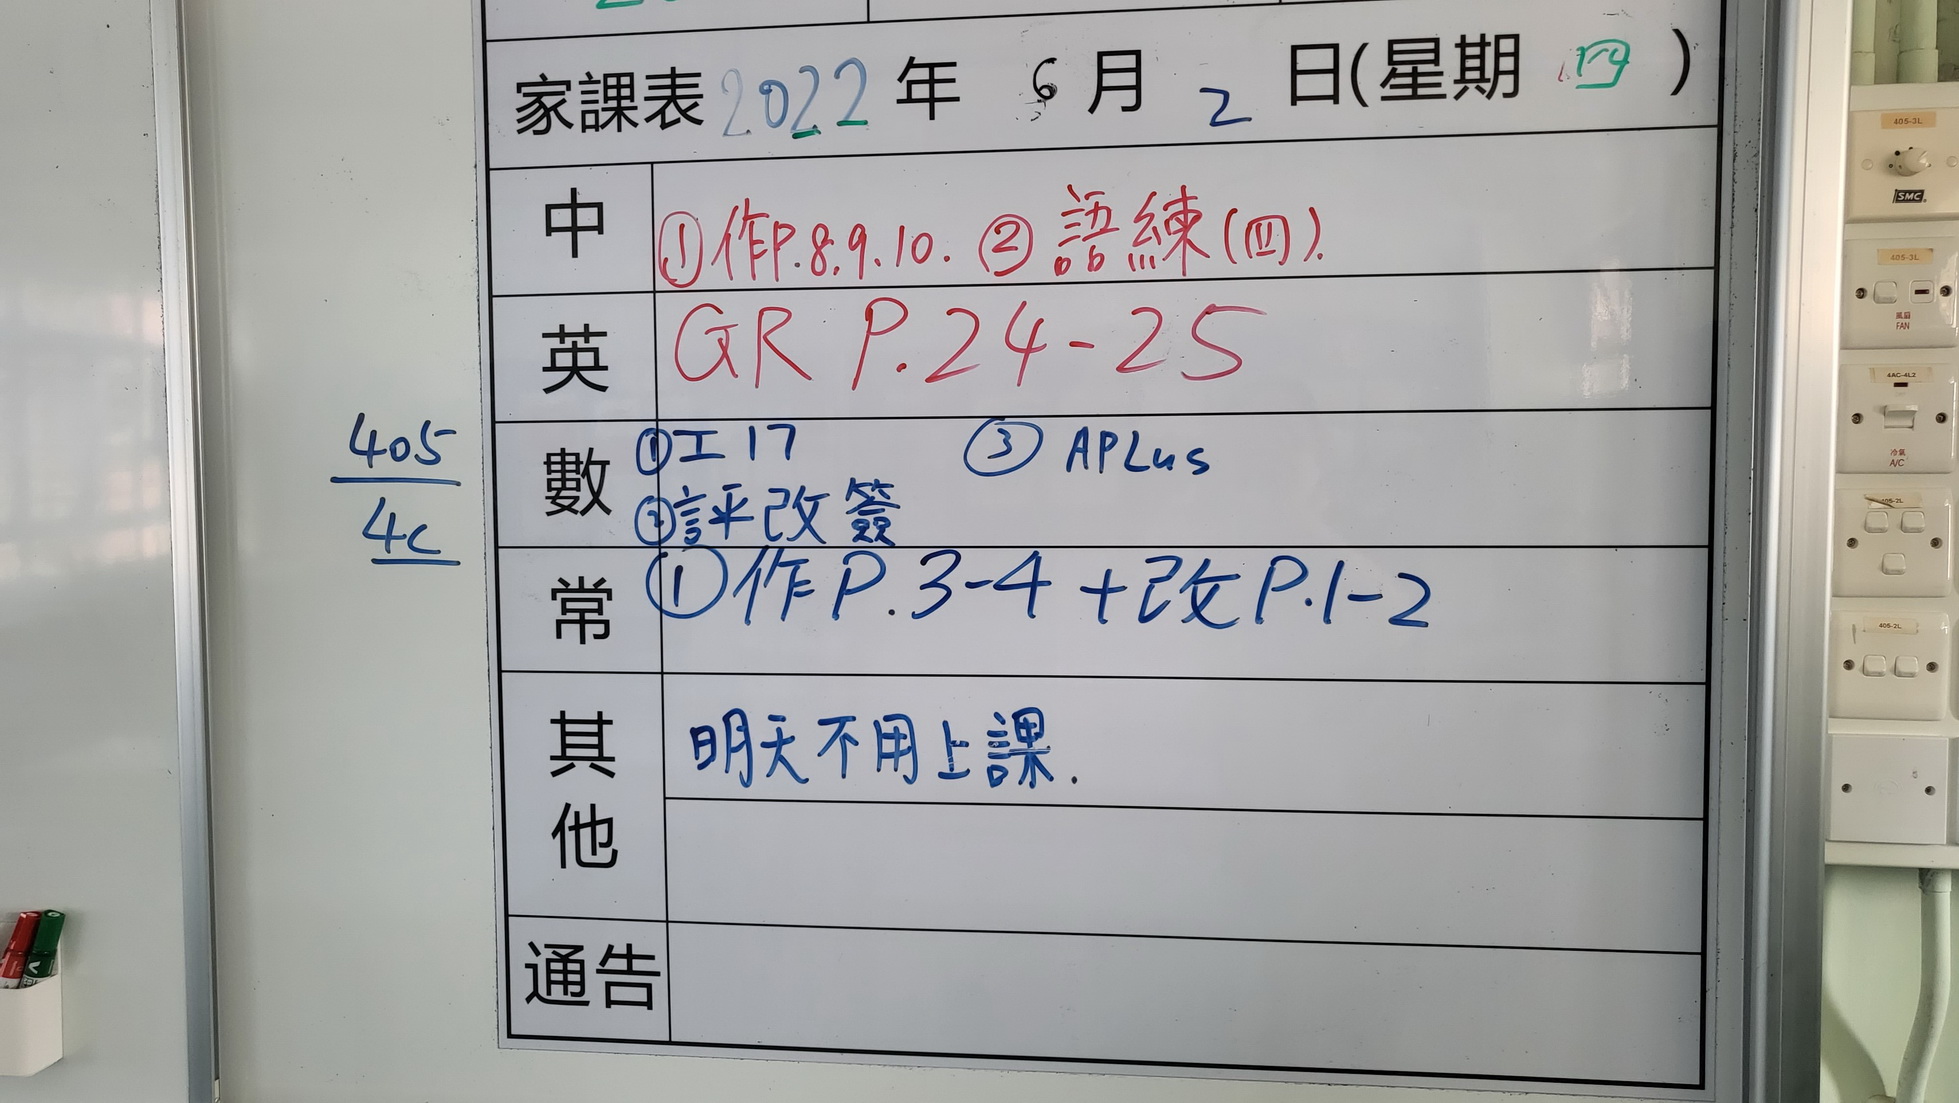 家課表 2022 年 6 月 2 日(星期 四 )
中 ①作P.8.9.10. ②語練(四).
英 GR P.24-25
數 ①工17 ③ APLus
②評改簽
常 ①作P.3-4 +改P.1-2
其他 明天不用上課.
通告
405
4c
405-3L
SMC
405-3L
風扇
FAN
4AC-4L2
冷氣
A/C
405-2L
405-2L